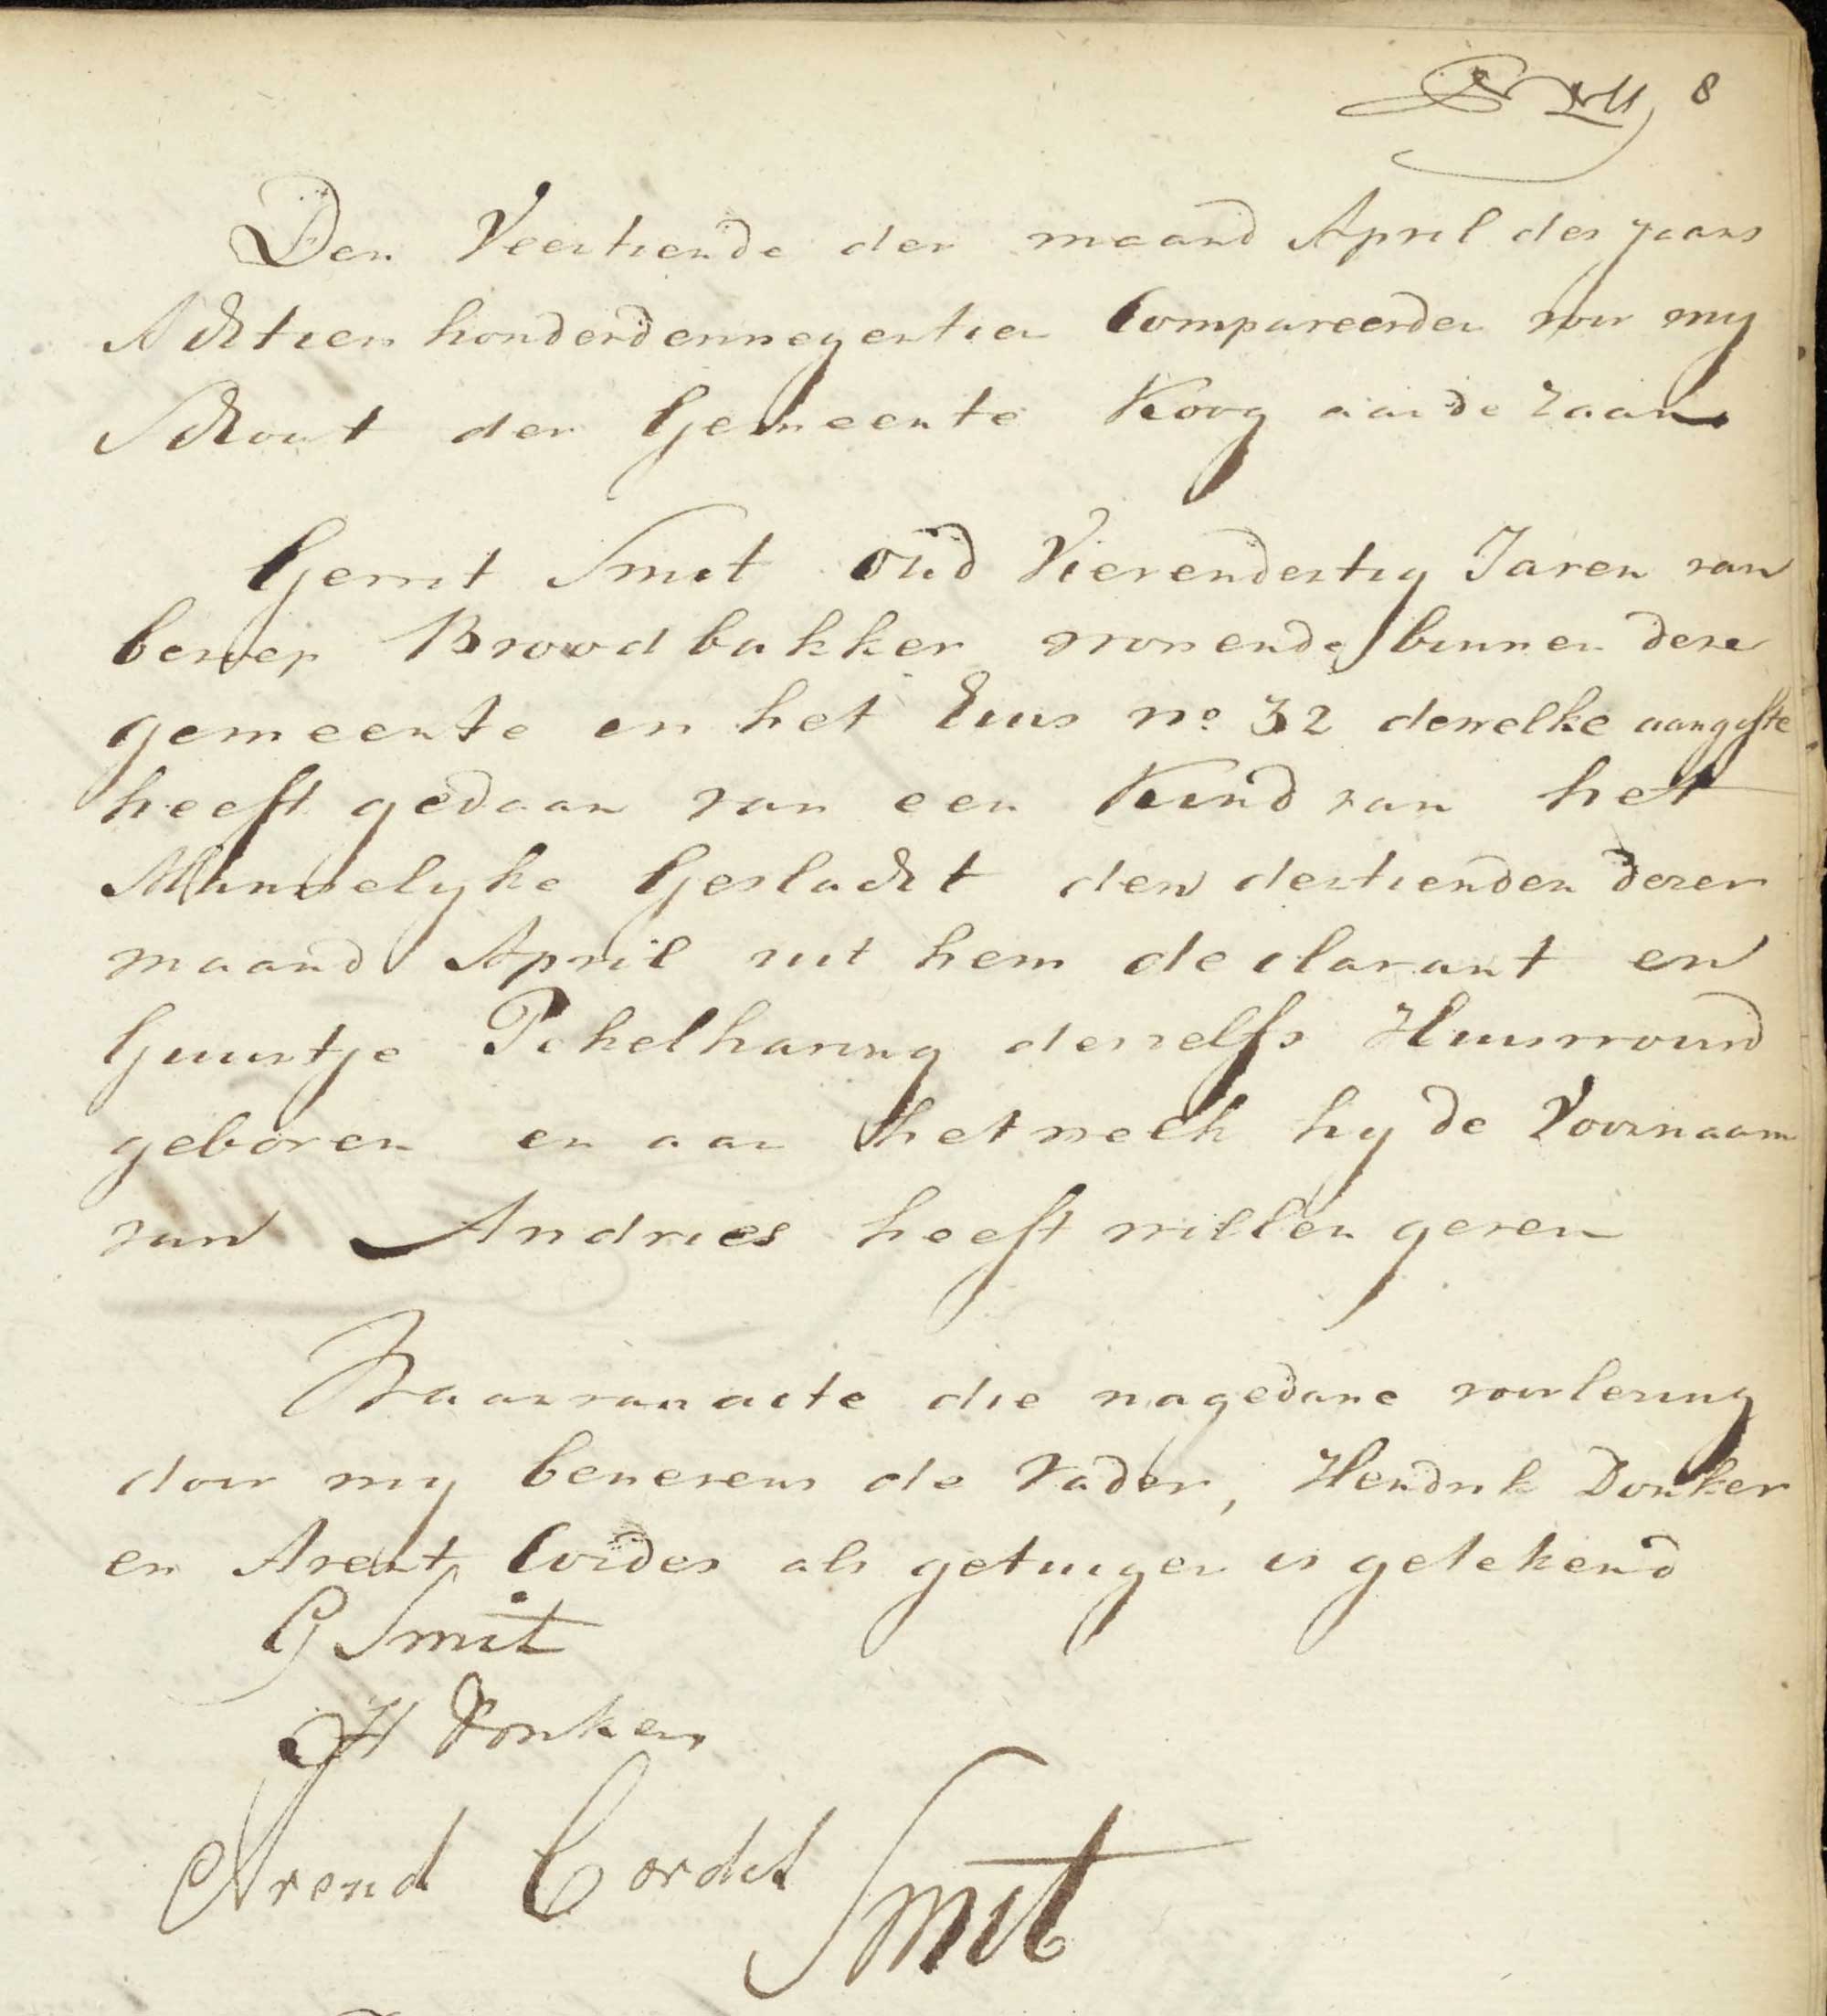 8
Den Veertiende der maand April des jaars
Achtien honderdennegentien Compareerden voor my
Schout der Gemeente Koog aan de Zaan
Gerrit Smit oud Vierendertig Jaren van
beroep Broodbakker wonende binnen deze
gemeente in het Huis no 32 dewelke aangifte
heeft gedaan van een Kind van het
Mannelyke Geslacht den dertienden dezer
maand April uit hem declarant en
Guurtje Pekelharing deszelfs Huisvrouw
geboren en aan hetwelk hy de Voornaam
van Andries heeft willen geven
Waarvan acte die nagedane voorlezing
door my benevens de Vader, Hendrik Donker
en Arent Cordes als getuigen is getekend
G Smit
H Donker
Arend Cordes
Smit